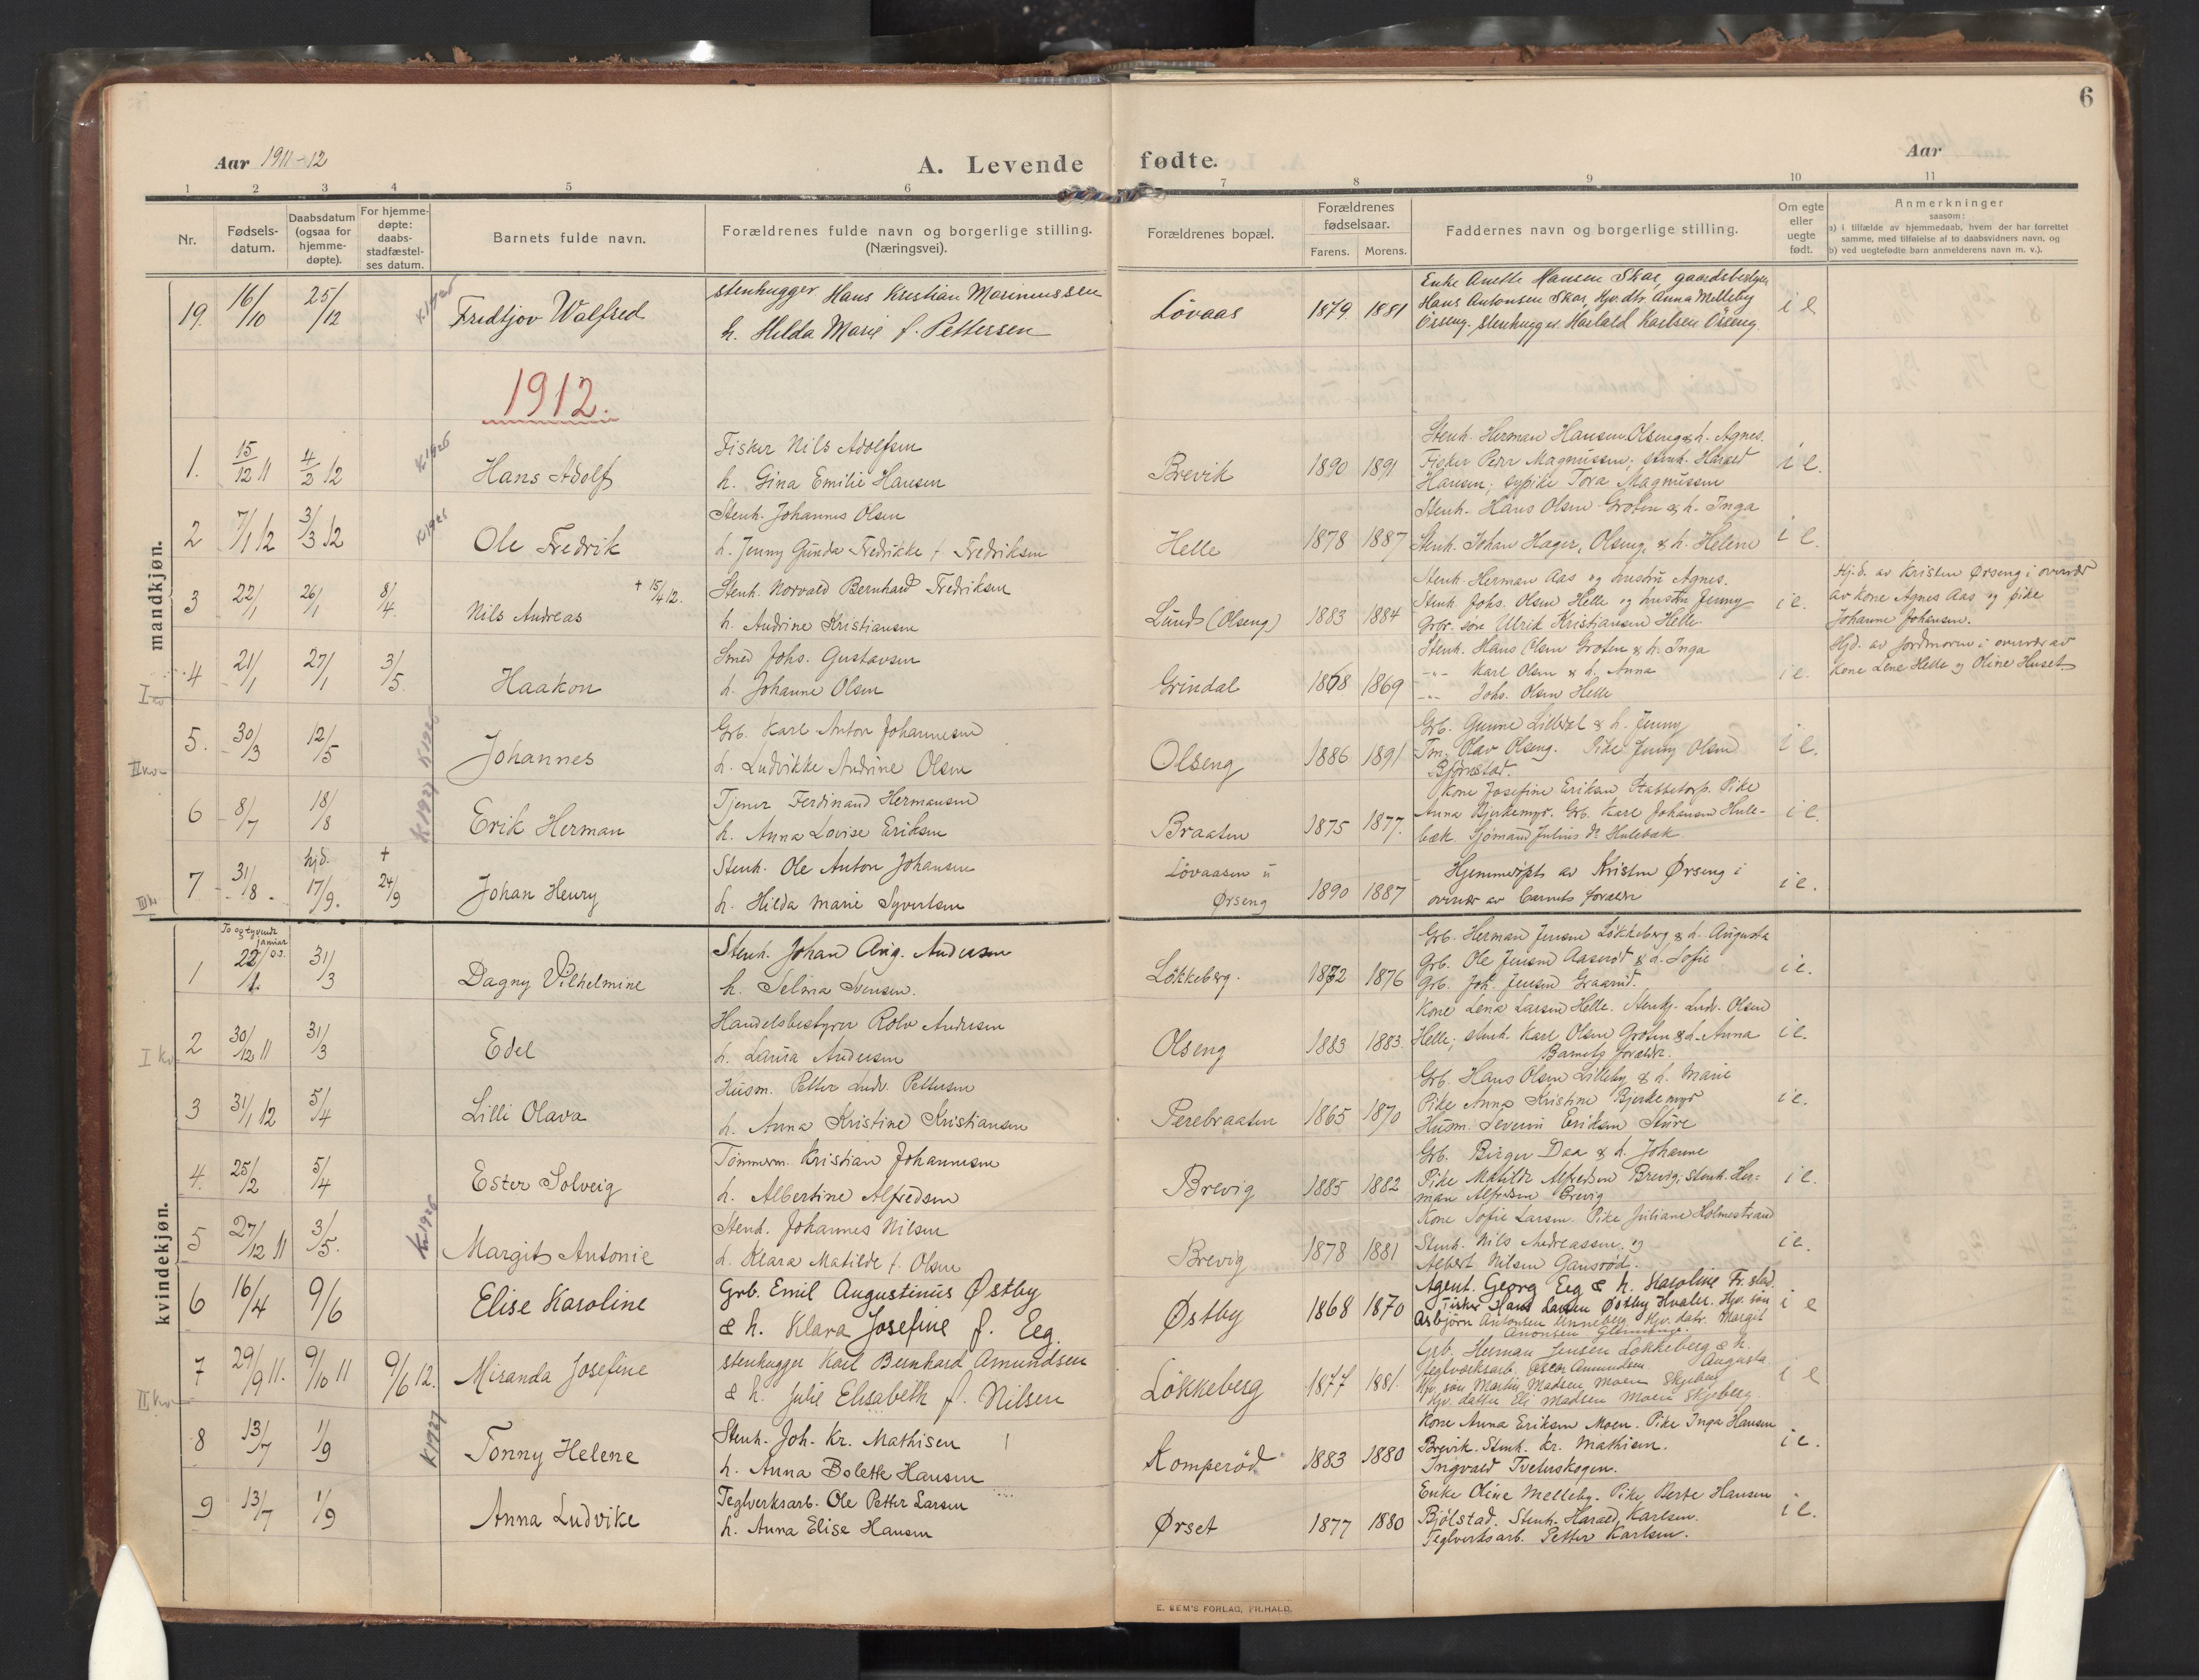 6
Aar 1911-12
A. Levende fødte.
Aar
1 2 3 4 5 6 7 8 9 10 11
Nr.
Fødsels-
datum.
Daabsdatum
(ogsaa for
hjemme-
døpte).
For hjemme-
døpte:
daabs-
stadfæstel-
ses datum.
Barnets fulde navn.
Forældrenes fulde navn og borgerlige stilling.
(Næringsvei).
Forældrenes bopæl.
Forældrenes
fødselsaar.
Farens. Morens.
Faddernes navn og borgerlige stilling.
Om egte
eller
uegte
født.
Anmerkninger
saasom:
a) i tilfælde av hjemmedaab, hvem der har forrettet
samme, med tilføielse af to daabsvidners navn, og
b) ved uegtefødte barn anmelderens navn m. v.).
19. 16/10 25/12
Fredtjov Walfred
stenhugger Hans Kristian Marinussen
h. Hilda Marie f. Pettersen
Lövaas 1879. 1881
Enke Anette Hansen Skar, gaardsbestyrer
Hans Antonsen Skar, Hjv. dtr. Anna Melleby
Örseng, stenhugger Harald Karlsen Örseng.
i e
1912.
mandkjøn.
1. 15/12 11 4/2 12 K 1926
Hans Adolf
Fisker Nils Adolfsen
h. Gina Emilie Hansen
Brevik 1890 1891
Stenh. Herman Hansen Olseng & h. Agnes.
Fisker Peder Magnussen; stenh. Harald
Hansen; sypike Tora Magnussen
i e.
2 7/1 12 3/3 12
Ole Fredrik
Stenh. Johannes Olsen
h. Jenny Gunda Fredrikke f. Fredriksen
Helle 1878 1887
Stenh. Hans Olsen Groten & h. Inga
Stenh. Johan Hager, Olseng, & h. Helene
i e.
3 22/1 26/1 8/4.
Nils Andreas + 15/4 12.
Stenh. Norvald Bernhard Fredriksen
h. Andrine Kristiansen
Lunds (Olseng) 1883 1884
Stenh. Herman Aas og hustru Agnes.
Stenh. Johs. Olsen Helle og hustru Jenny
Grbr. søn Ulrik Kristiansen Helle
i e.
Hj.d. av Kristen Ørseng i overvær
av kone Agnes Aas og pike
Johanne Johansen.
4 21/1 27/1 3/5.
Haakon
Smed Johs. Gustavsen
h. Johanne Olsen
Grindal 1868 1869
Stenh. Hans Olsen Groten & h. Inga
-"- Karl Olsen & h. Anna
-"- Johs. Olsen Helle
i e.
Hjd. av jordmoren i overvær av
Kone Lene Helle og Oline Huset
5. 30/3 12/5 K 1926
Johannes
Grb. Karl Anton Johannesen
h. Ludvikke Andrine Olsen
Olseng 1886 1891
Grb. Gunne Lillevel & h. Jenny
Tm. Olav Olseng. Pike Jenny Olsen
Bjørnstad.
i e.
6 8/7 18/8 K 1927
Erik Herman
Tjener Ferdinand Hermansen
h. Anna Lovise Eriksen
Braaten 1875 1877.
Kone Josefine Eriksen Stabbetorp. Pike
Anna Bjerkemyr. Grb. Karl Johansen Hule-
bæk. Sjømand Julius do Hulebæk
i e.
7 31/8. hjd. 17/9. + 24/9
Johan Henry
Stenh. Ole Anton Johansen
h. Hilda Marie Syvertsen
Løvaasen u
Ørseng 1890 1887
Hjemmedøpt av Kristen Ørseng i
overvær av barnets forældre
i e.
kvindekjøn.
1 To og tyvende januar 22/1. 31/3
Dagny Vilhelmine
Stenh. Johan Aug. Andersen
h. Selma Svensen.
Løkkeberg. 1872 1876
Grb. Herman Jensen Løkkeberg & h. Augusta
Grb. Ole Jensen Aaserød & h. Sofie
Grb. Joh. Jensen Graarud.
i e.
2 30/12 11 31/3
Edel
Handelsbestyrer Rolv Andersen
h. Laura Andersen
Olseng 1883 1883.
Kone Lena Larsen Helle. Stenhg. Ludv. Olsen
Helle; stenh. Karl Olsen Groten & h. Anna
Barnets forældre.
i e.
3 31/1 12 5/4
Lilli Olava
Husm. Petter Ludv. Pettersen
h. Anna Kristine Kristiansen
Perebraaten 1865 1870
Grb. Hans Olsen Lilleby & h. Marie
Pike Anna Kristine Bjerkemyr
Husm. Severin Eriksen Sture
i e.
4. 25/2 5/4
Ester Solveig
Tømmerm. Kristian Johannesen
h. Albertine Alfredsen
Brevig 1885 1882
Grb. Birger Daa & h. Johanne
Pike Matilde Alfredsen Brevig; stenh. Her-
man Alfredsen Brevig
i e.
5 27/12 11 3/5. K 1926
Margit Antonie
Stenh. Johannes Nilsen
h. Klara Matilde f. Olsen
Brevig 1878 1881
Kone Sofie Larsen. Pike Juliane Holmestrand
Stenh. Nils Andreassen og
Albert Nilsen Gansrød.
i e.
6 16/4 9/6
Elise Karoline
Grb. Emil Augustinus Østby
& h. Klara Josefine f. Eeg.
Østby 1868 1870
Agent Georg Eeg & h. Karoline Fr.stad.
Fisker Hans Larsen Østby Hvaler. Hjv. søn
Asbjörn Antonsen Unneberg. Hjv. datr. Margit
i e
7 29/9 11. 9/10 11 9/6 12.
Miranda Josefine
stenhugger Karl Bernhard Amundsen
& h. Julie Elisabeth f. Nilsen
Lökkeberg 1877 1881.
Grb. Herman Jensen Løkkeberg & h.
Augusta.
teglverksarb. Oscar Amundsen
Hjv. søn Martin Madsen Moen Skjeberg
Hjv. datter Eli Madsen Moen Skjeberg.
i e
8 13/7 1/9 K 1927
Tonny Helene
Stenh. Joh. Kr. Mathisen
h. Anna Bolette Hansen
Komperöd 1883 1880
Kone Anna Eriksen Moen. Pike Inga Hansen
Brevik. Stenh. Kr. Mathisen.
Ingvald Tveterskogen.
i e.
9 13/7 1/9
Anna Ludvike
Teglverksarb. Ole Petter Larsen
h. Anna Elise Hansen
Ørset 1877 1880
Enke Oline Melleby. Pike Berte Hansen
Bjølstad. Stenh. Harald Karlsen.
Teglverksarb. Petter Karlsen.
i e.
E. SEM'S FORLAG, FR.HALD.